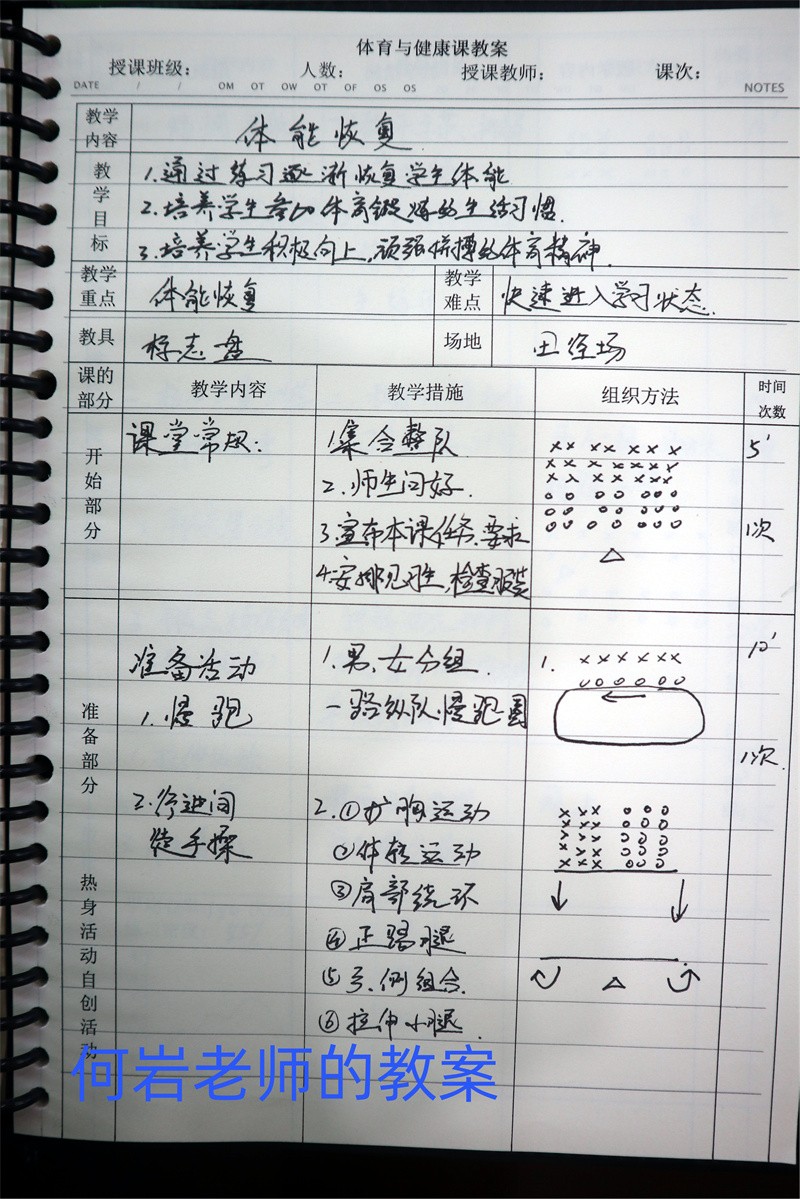 体育与健康课教案
授课班级： 人数： 授课教师： 课次：
DATE / / OM OT OW OT OF OS OS NOTES
教学内容 体能恢复
教学目标 1.通过练习逐渐恢复学生体能
2.培养学生参加体育锻炼的生活习惯.
3.培养学生积极向上,顽强拼搏的体育精神.
教学重点 体能恢复 教学难点 快速进入学习状态.
教具 标志盘 场地 田径场
课的部分 教学内容 教学措施 组织方法 时间次数
开始部分 课堂常规: 1.集合整队 5'
2.师生问好.
3.宣布本课任务、要求 1次
4.安排见习生,检查服装
准备部分 准备活动 1.男、女分组. 1. 10'
1.慢跑 一路纵队慢跑一圈
1次.
2.行进间 2.①扩胸运动
徒手操 ②体转运动
热身活动自创活动 ③肩部绕环
④正踢腿
⑤弓、侧组合.
⑥拉伸小腿.
何岩老师的教案